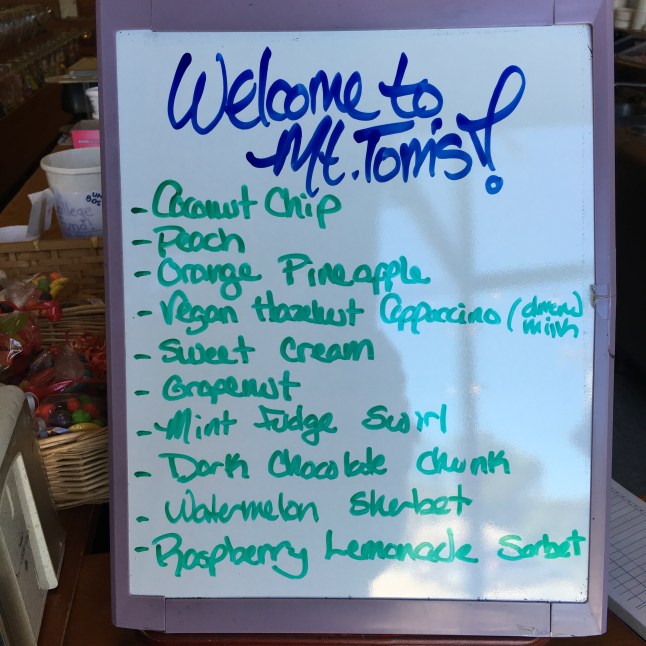 Welcome to
Mt. Tom's!
- Coconut Chip
- Peach
- Orange Pineapple
- Vegan Hazelnut Cappuccino (almond milk
- Sweet Cream
- Grapenut
- Mint Fudge Swirl
- Dark Chocolate Chunk
- Watermelon Sherbet
- Raspberry Lemonade Sorbet